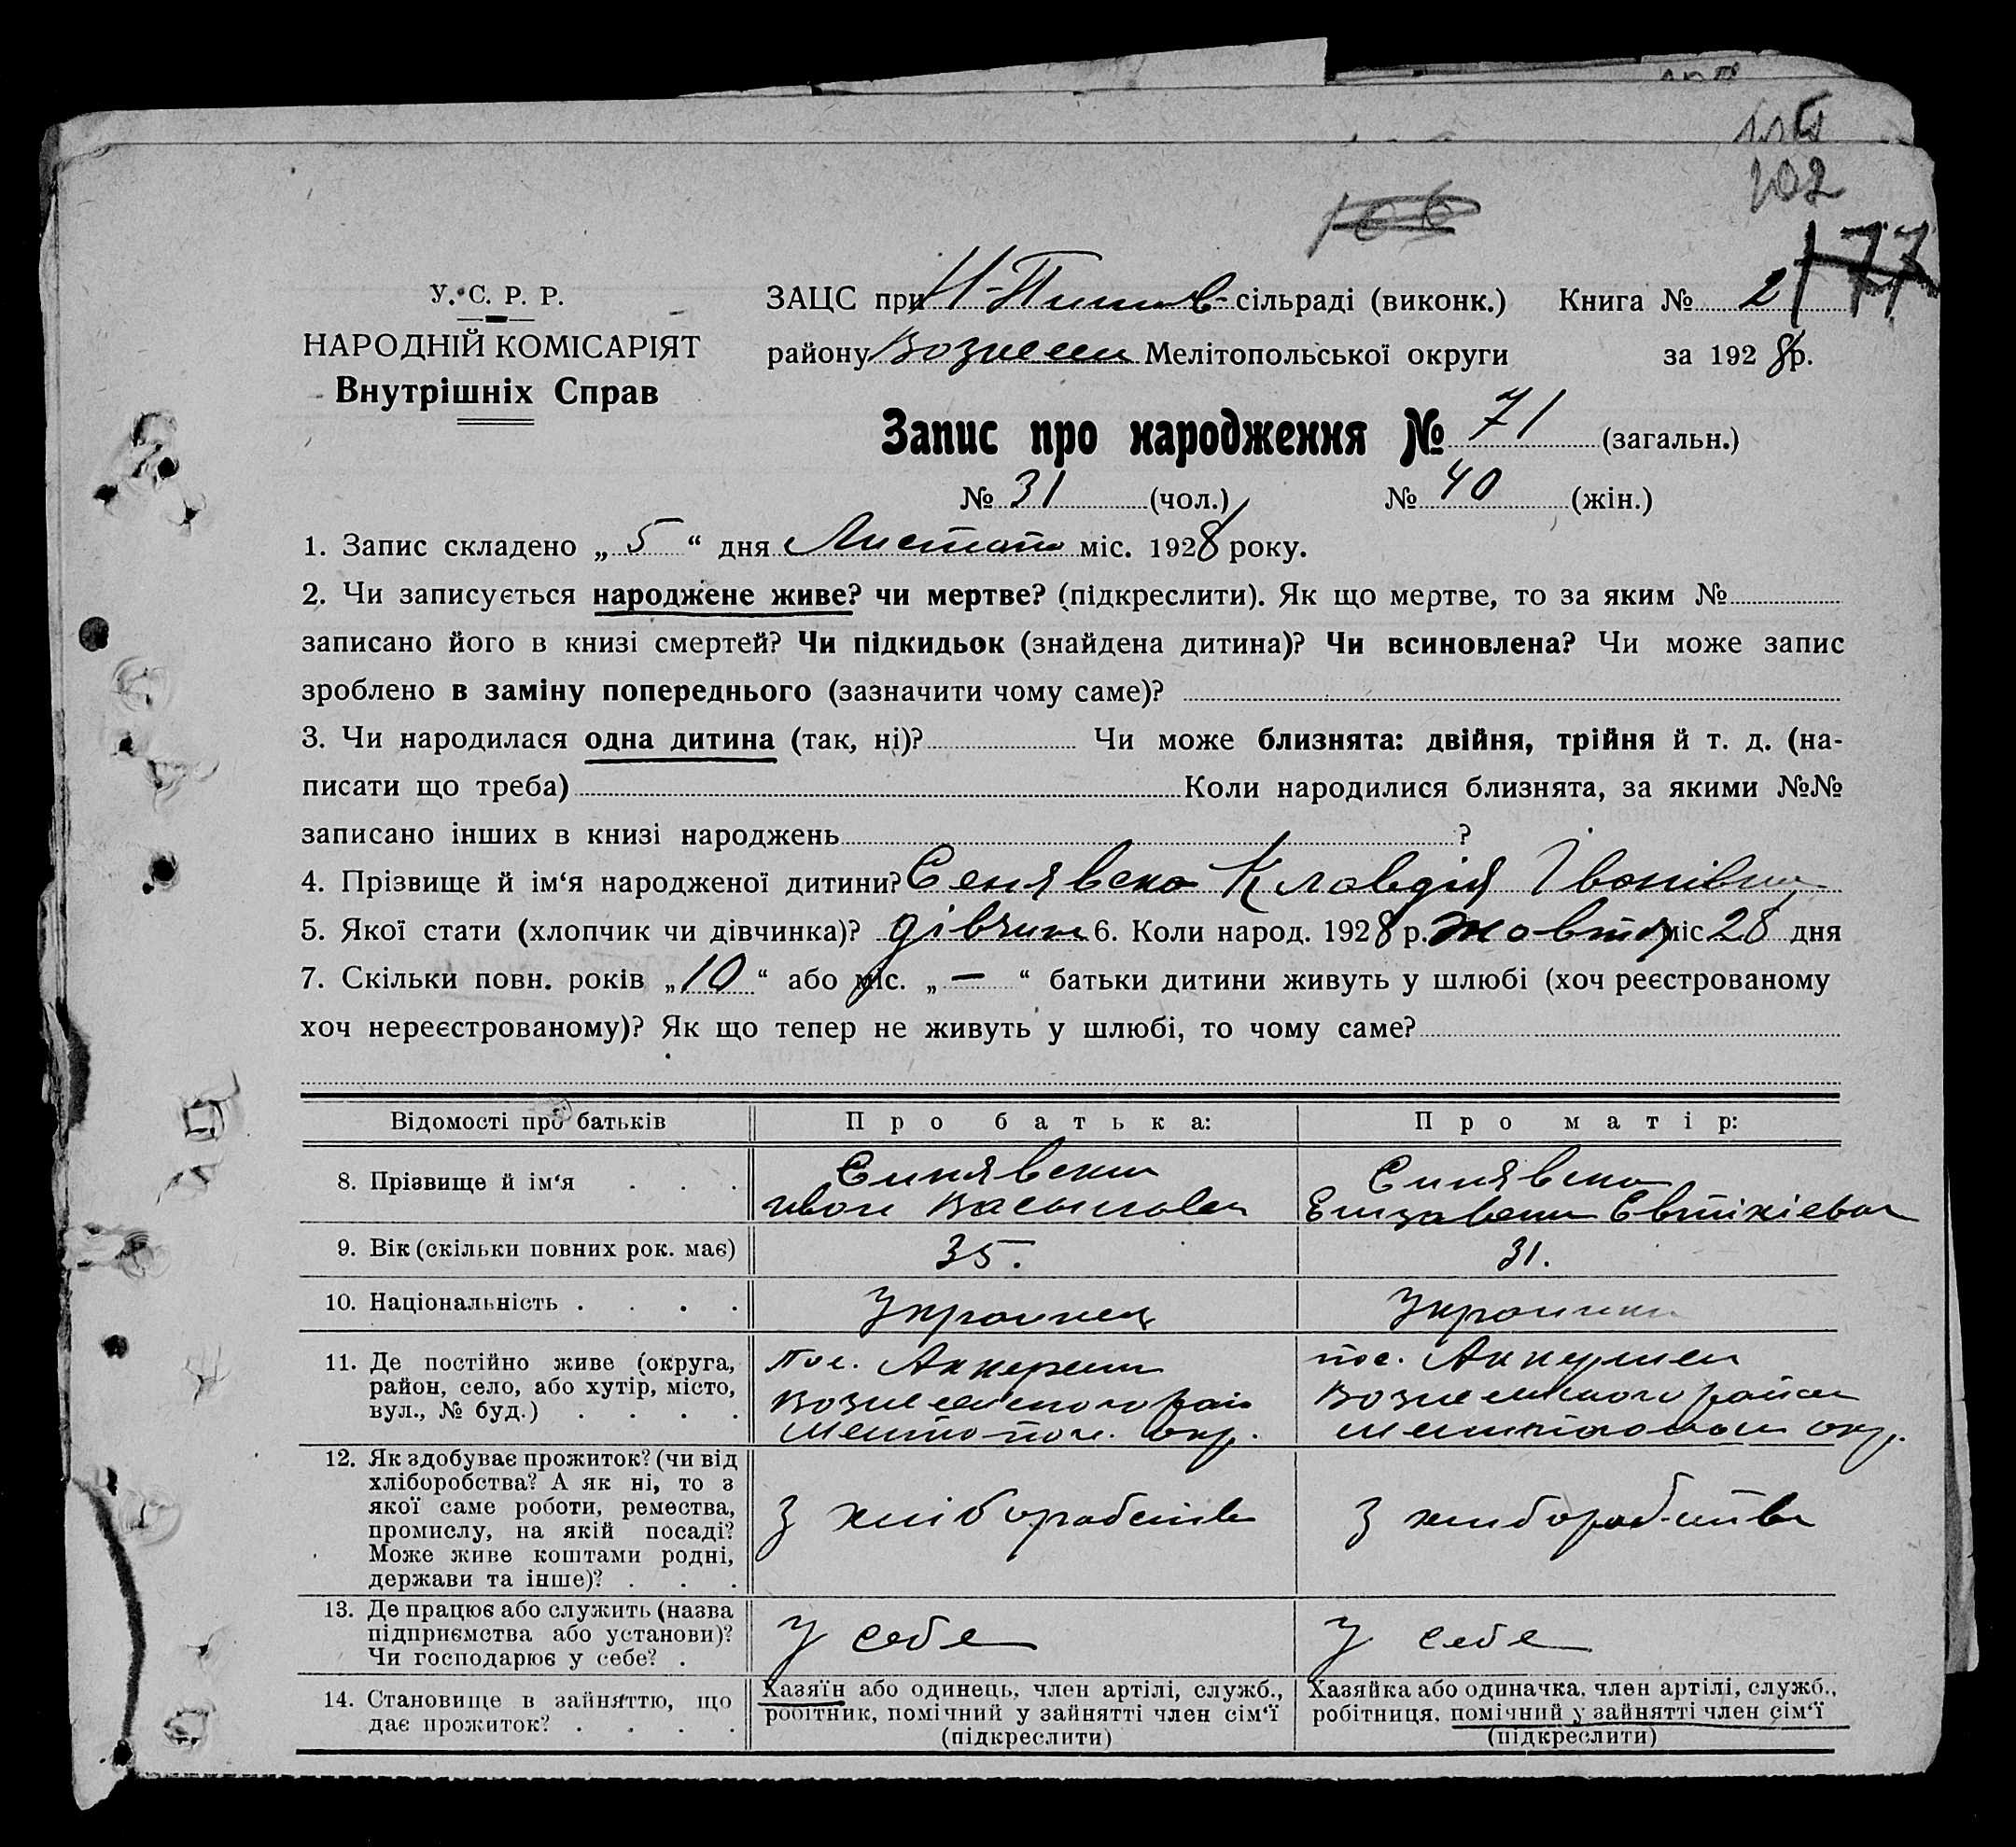 102
106
177
У. С. Р. Р.
НАРОДНІЙ КОМІСАРІЯТ
Внутрішніх Справ
ЗАЦС при сільраді (виконк.) Книга № 2
району Вознесен Мелітопольської округи за 1928 р.
Запис про народження № 71 (загальн.)
№ 31 (чол.) № 40 (жін.)
1. Запис складено „ 5 “ дня Листопа міс. 1928 року.
2. Чи записується народжене живе? чи мертве? (підкреслити). Як що мертве, то за яким №
записано його в книзі смертей? Чи підкидьок (знайдена дитина)? Чи всиновлена? Чи може запис
зроблено в заміну попереднього (зазначити чому саме)?
3. Чи народилася одна дитина (так, ні)? Чи може близнята: двійня, трійня й т. д. (на-
писати що треба) Коли народилися близнята, за якими №№
записано інших в книзі народжень ?
4. Прізвище й ім‘я народженої дитини? Сенявска Клавдія Іванівна
5. Якої стати (хлопчик чи дівчинка)? дівчин 6. Коли народ. 1928 р. жовтня міс 28 дня
7. Скільки повн. років „ 10 “ або міс. „ — “ батьки дитини живуть у шлюбі (хоч реєстрованому
хоч нереєстрованому)? Як що тепер не живуть у шлюбі, то чому саме?
Відомості про батьків Про батька: Про матір:
8. Прізвище й ім‘я . . . Синявски Иван Василов Синявска Елизавета Евтихіевна
9. Вік (скільки повних рок. має) 35. 31.
10. Національність . . . . Украинец Украинка
11. Де постійно живе (округа, пос. Аккермен пос. Аккермен
район, село, або хутір, місто, Вознесенского рай Вознесенского район
вул., № буд.) . . . . Мелітопол. окр. Мелитополь окр.
12. Як здобуває прожиток? (чи від
хліборобства? А як ні, то з
якої саме роботи, ремества, З хліборобства З хлиборобства
промислу, на якій посаді?
Може живе коштами родні,
держави та інше)? . . .
13. Де працює або служить (назва
підприємства або установи)? У себе У себе
Чи господарює у себе? .
14. Становище в зайняттю, що Хазяїн або одинець, член артілі, служб., Хазяйка або одиначка, член артілі, служб.,
дає прожиток? . . . . робітник, помічний у зайнятті член сім‘ї робітниця, помічний у зайнятті член сім‘ї
(підкреслити) (підкреслити)